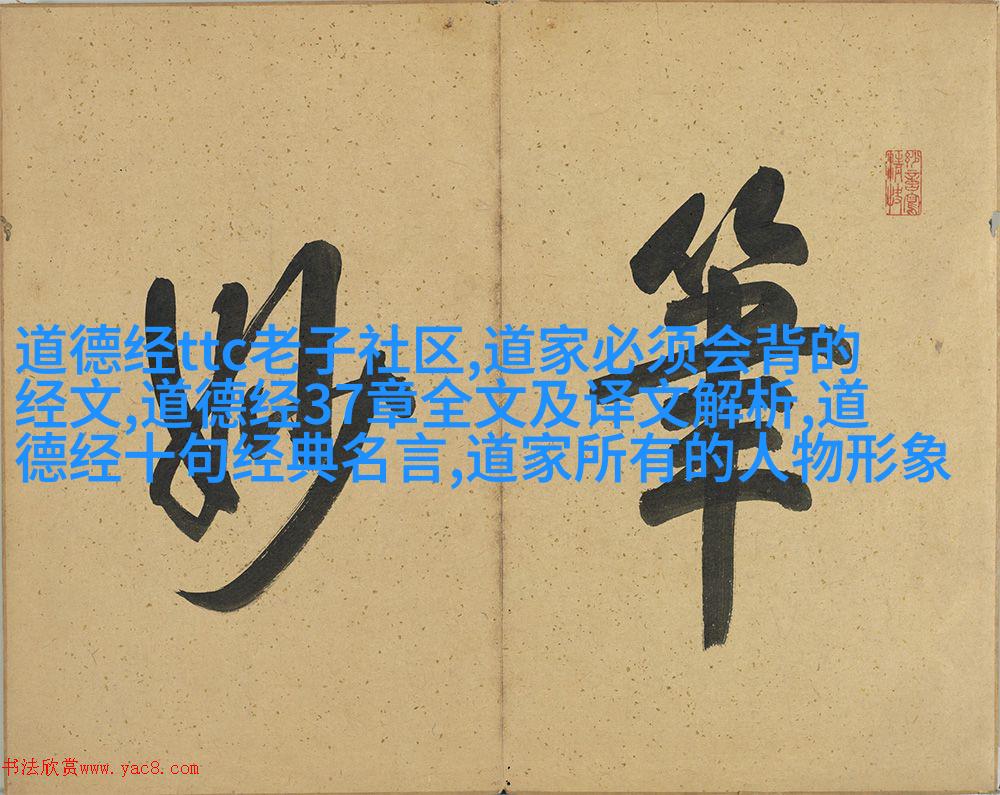 筆
妙
道德经ttc老子社区,道家必须会背的
经文,道德经37章全文及译文解析,道
德经十句经典名言,道家所有的人物形象
书法欣赏www.yac8.com